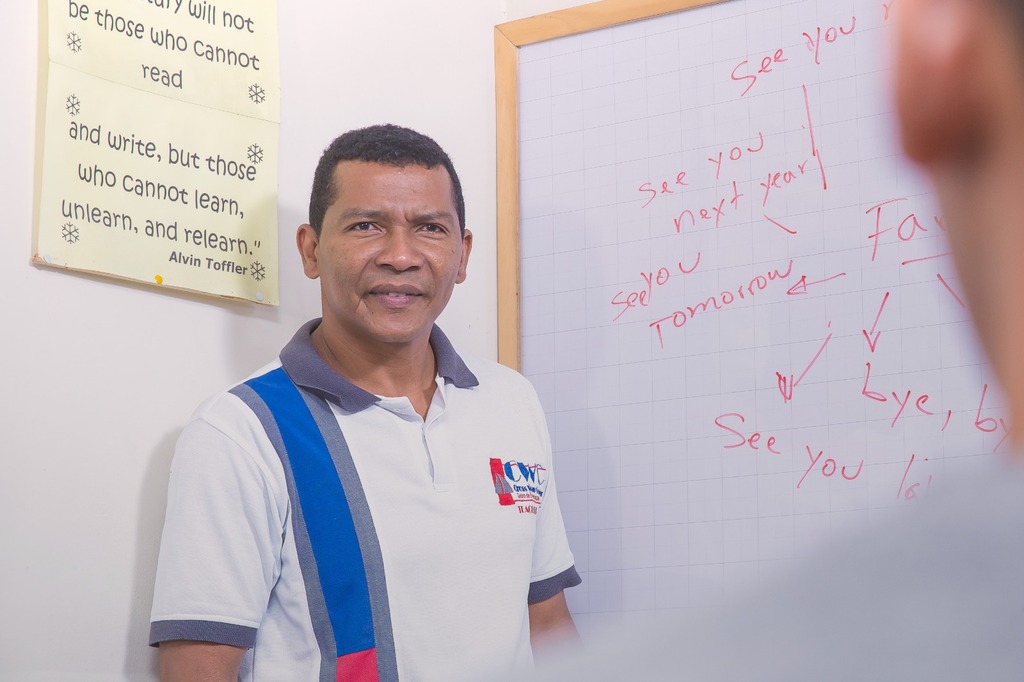 will not
be those who cannot
read
and write, but those
who cannot learn,
unlearn, and relearn."
Alvin Toffler
See you
see you
next year
see you
Tomorrow
Far
bye, by
See you
CWC